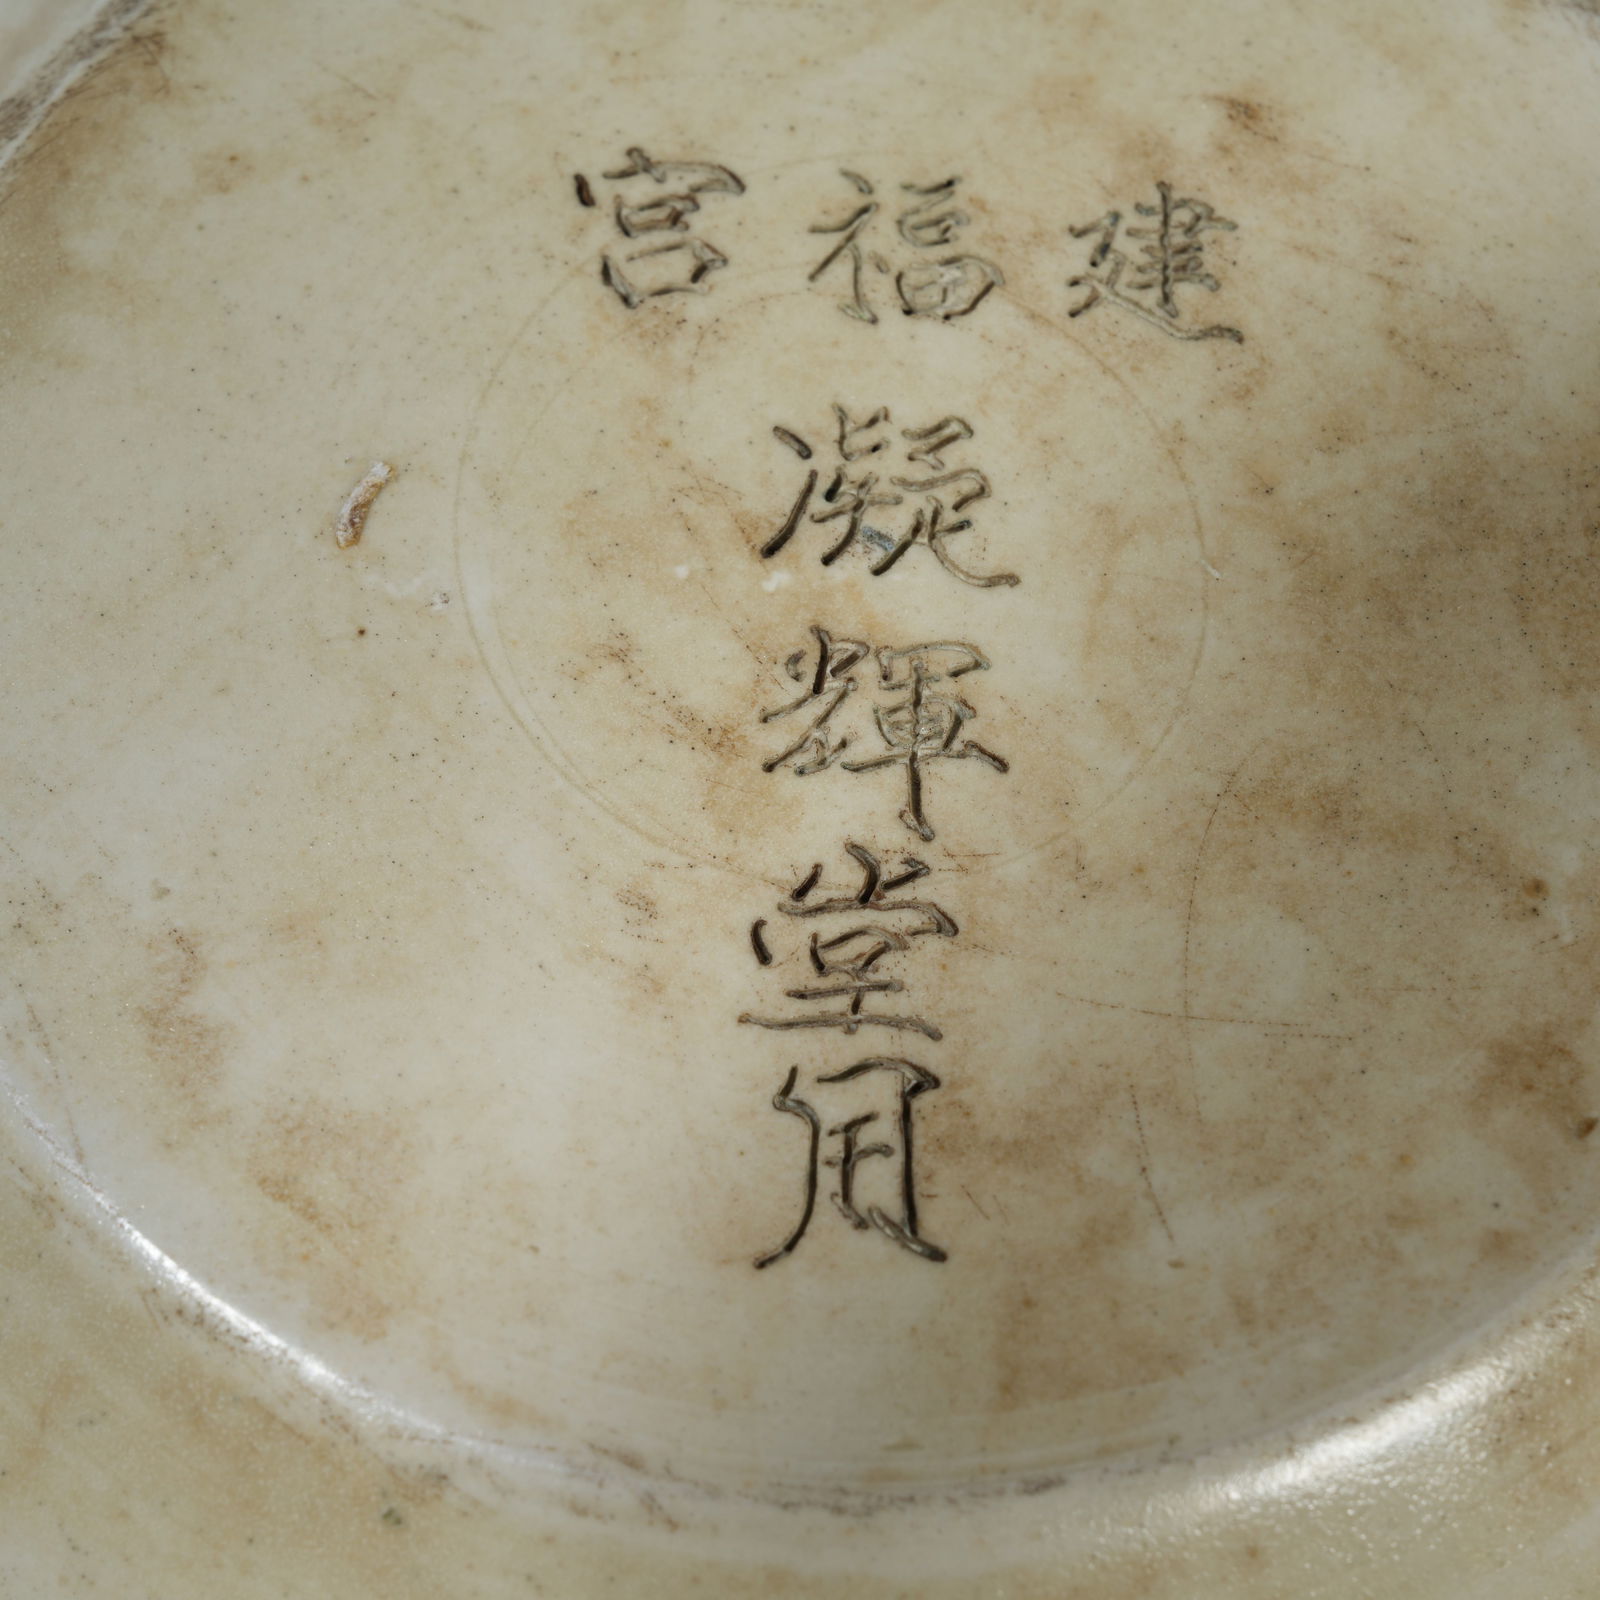 建福宮
凝輝堂用